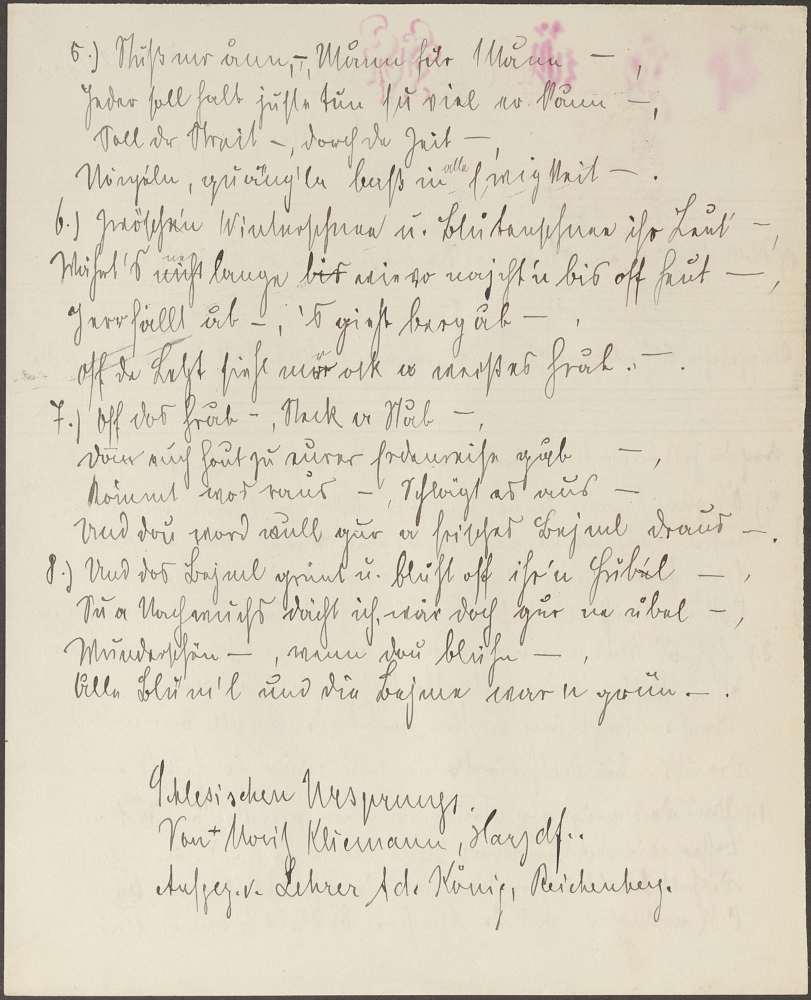 5.) Stuß mr ånn, –, Månn für Månn –,
Jeder soll halt juste tun su viel er kånn –,
Soll dr Streit –, dorch de Zeit –,
Nörgeln, quäng'ln bass in alle Ewigkeit –.
6.) Zwösch'n Winterschnee u. Blütenschnee ihr Leut' –,
Währt's ne lange wievo najcht'n bis off heut –,
Jerr fällt åb –, 's gieht bergåb –,
Off de Letzt sieht mör ock a weißes Gråb. –.
7.) Off dos Gråb –, Steck a Ståb –,
Dan euch Gout zu eurer Erdenreise gåb –,
Kömmt wos raus –, Schlägt es aus –
Und dou word wull gur a frisches Bejml draus –.
8.) Und dos Bejml grünt u. blüht off ihr'n Hübel –,
Su a Nachwuchs dächt ich, wär doch gur ne übel –,
Wunderschön –, wenn dou blühn –,
Alle Blüm'l und die Bejme war'n grün. –.
Schlesischen Ursprungs.
Von + Moritz Kliemann, Harzdf..
Aufgez. v. Lehrer Ad. König, Reichenberg.